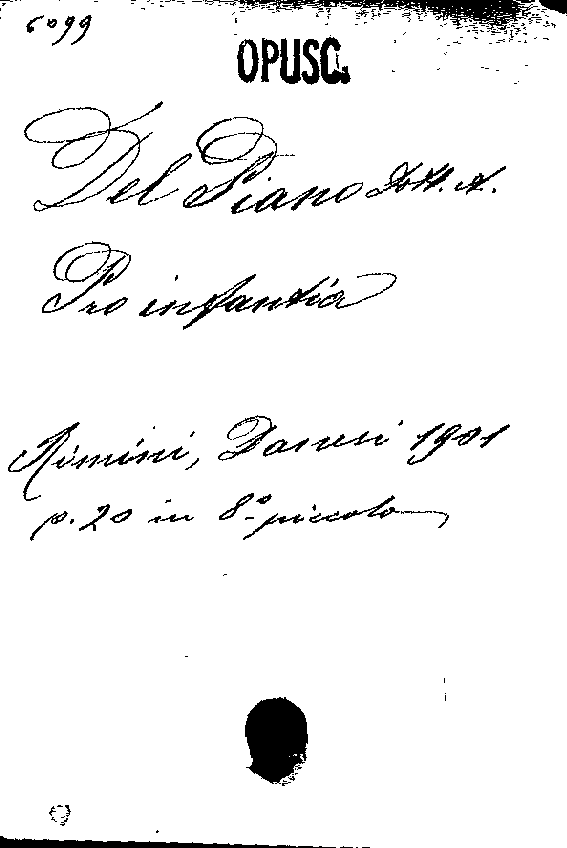 6099
OPUSC.
Del Piano Dott. A.
Pro infantia
Rimini, Danesi 1901
p. 20 in 8.º piccolo